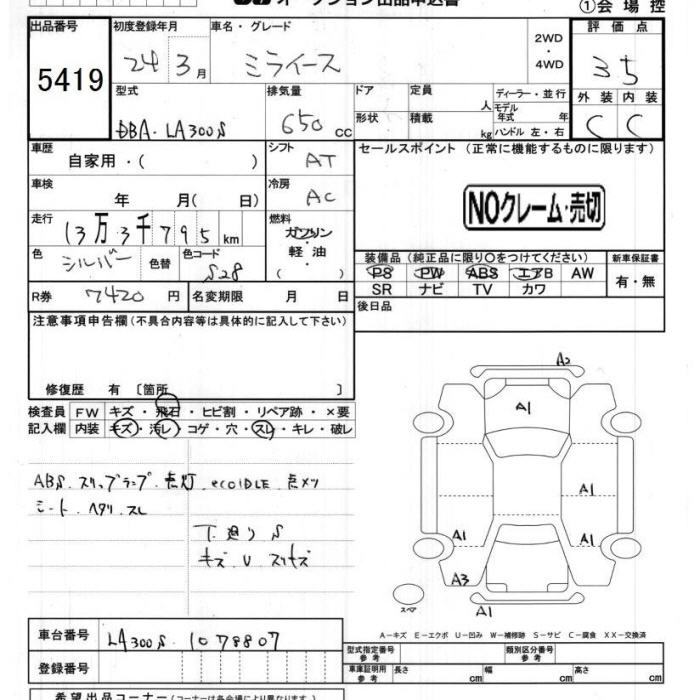 オークション出品申込書
①会場控
出品番号 初度登録年月 車名・グレード 評価点
5419 24 3月 ミライース 2WD・4WD 3.5
型式 排気量 ドア 定員 人 ディーラー・並行 外装 内装
DBA-LA300S 650 CC 形状 積載 kg モデル年式 年 ハンドル 左・右 C C
車歴 自家用・( ) シフト AT セールスポイント(正常に機能するものに限ります)
車検 年 月(日) 冷房 AC
NOクレーム・売切
走行 13万3千795km 燃料 ガソリン・軽油・( )
色 シルバー 色替 色コード S28
装備品(純正品に限り〇をつけてください) 新車保証書
PS PW ABS エアB AW 有・無
SR ナビ TV カワ
R券 7420円 名変期限 月 日 後日品
注意事項申告欄(不具合内容等は具体的に記入して下さい)
修復歴 有 〔箇所 〕
検査員 FW キズ・飛石・ヒビ割・リペア跡・×要
記入欄 内装 キズ・汚レ・コゲ・穴・スレ・キレ・破レ
A2
A1
ABS.スリップランプ.点灯.ecoIDLE.点メツ
シート.ヘタリ.スレ
A1
下廻りS
キズ U スリキズ
A1 A1
A3
スペア A1
A-キズ E-エクボ U-凹み W-補修跡 S-サビ C-腐食 XX-交換済
車台番号 LA300S-1078807
型式指定番号 参考 類別区分番号 参考
登録番号 車庫証明用 参考 長さ cm 幅 cm 高さ cm
希望出品コーナー(コーナーは各会場により異なります)